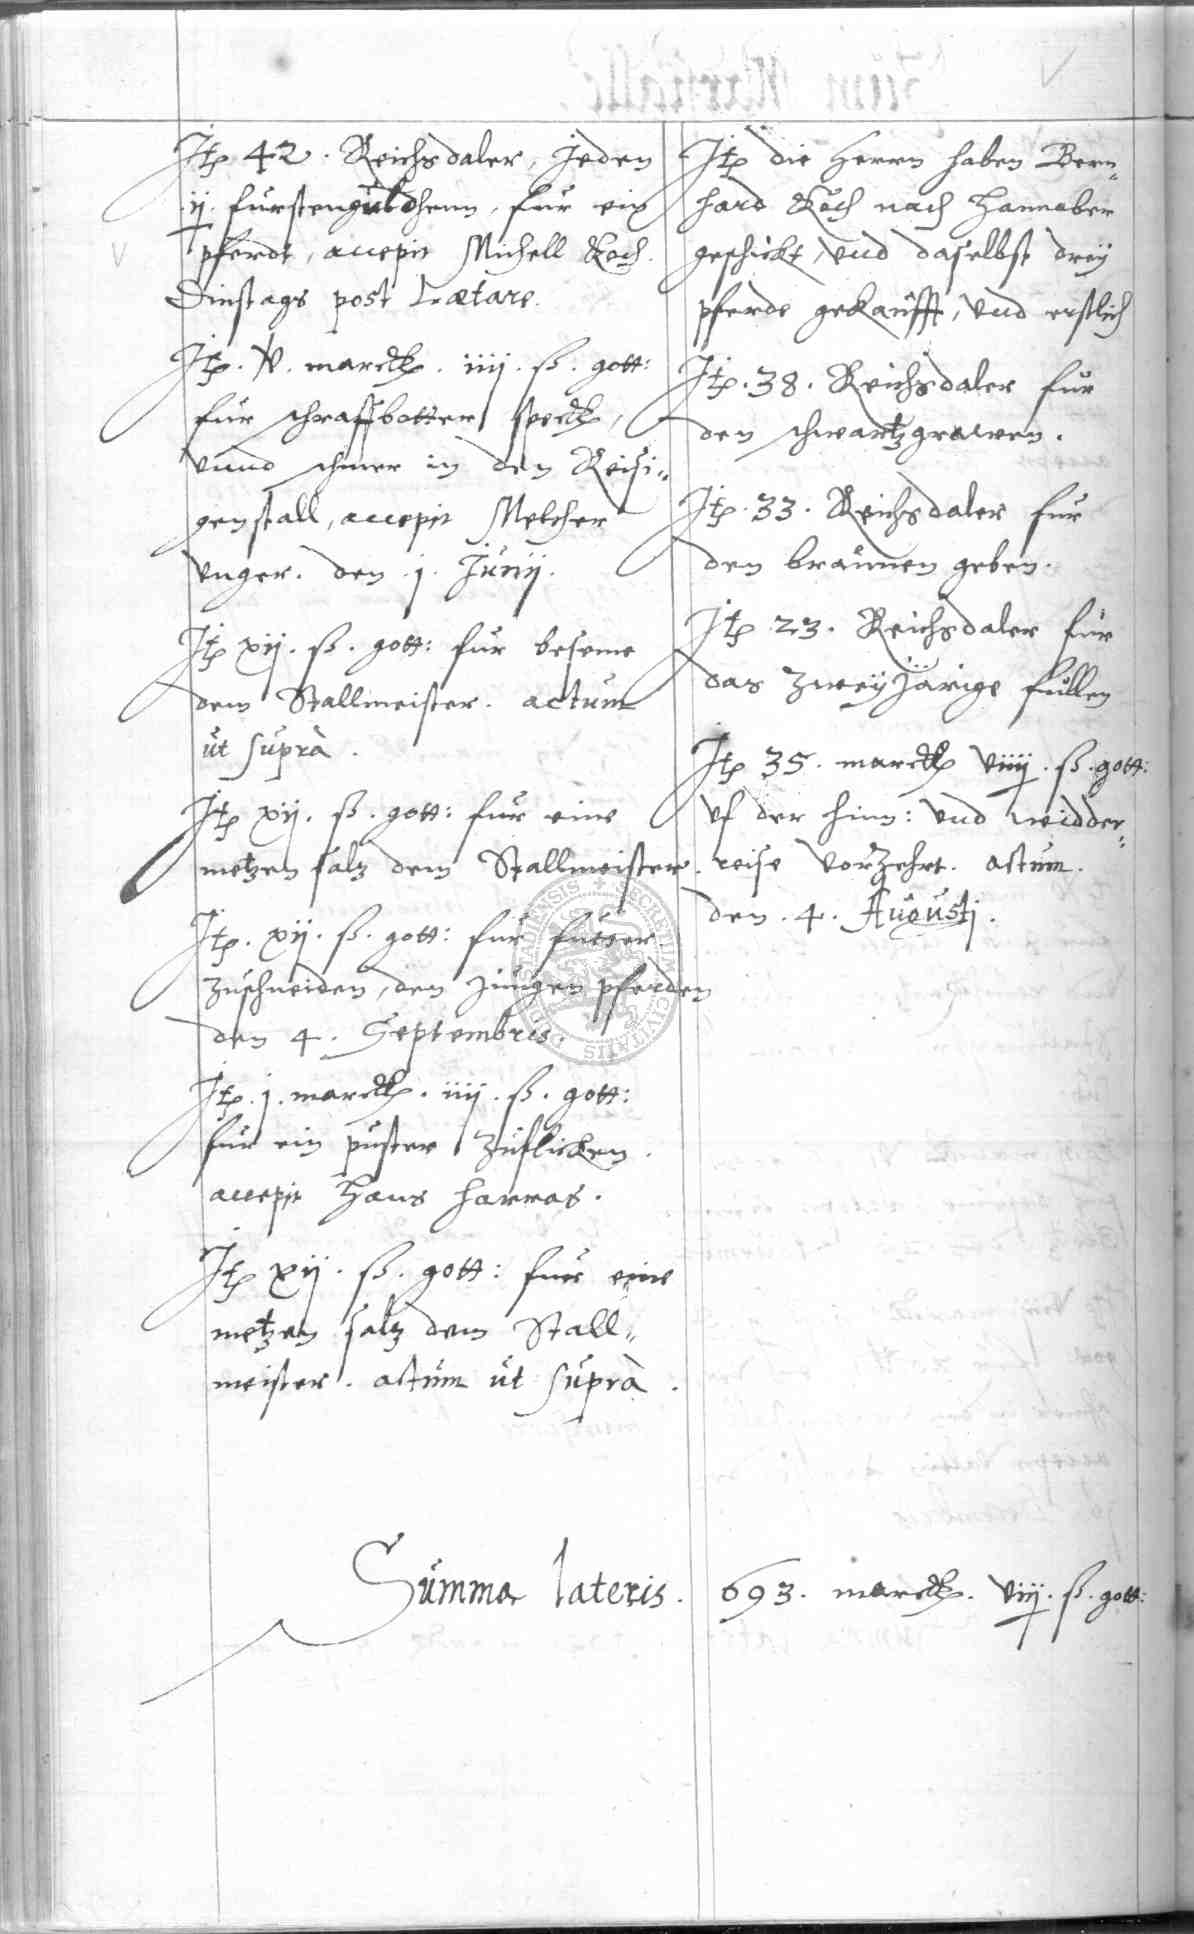 Itp 42. Reichsdaler, Jeden
ij. furstenguldhenn, fur ein
pferdt, accepit Michell Koch.
Dinstags post Lætare.
Itp. V. marck. iiij. ß. gott:
fur schaffbotter speck,
unnd schmer in den Reisi„
genstall, accepit Melcher
Unger. den .j. Junij.
Itp xij. ß. gott: fur beseme
dem Stallmeister. actum
ut suprà.
Itp xij. ß. gott: fur eine
metzen saltz dem Stallmeister.
Itp. xij. ß. gott: fur futter
zuschneiden, den jungen pferden
den 4. Septembris.
Itp .j. marck. iiij. ß. gott:
fur ein puster zuflicken.
accepit Hans Harras.
Itp xij. ß. gott: fur eine
metzen saltz dem Stall„
meister. actum ut suprà.
Itp die Herrn haben Bern„
hard Koch nach Hannober
geschickt, und daselbst dreÿ
pferde gekaufft, und erstlich
Itp. 38. Reichsdaler fur
den schwartzgrawen.
Itp. 33. Reichsdaler fur
den braunen geben.
Itp 23. Reichsdaler fur
das zweÿJärige fullen
Itp 35. marck viiij. ß. gott:
uf der hinn: und widder„
reise vorzehrt. actum.
den .4. Augustj.
Summa lateris. 693. marck. viij. ß. gott: